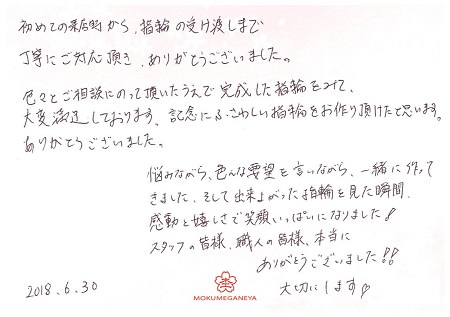 初めての来店時から、指輪の受け渡しまで
丁寧にご対応頂き、ありがとうございました。
色々とご相談にのって頂いたうえで完成した指輪をみて、
大変満足しております。記念にふさわしい指輪をお作り頂けたと思います。
ありがとうございました。
悩みながら、色んな要望を言いながら、一緒に作って
きました。そして出来上がった指輪を見た瞬間、
感動と嬉しさで笑顔いっぱいになりました!
スタッフの皆様、職人の皆様、本当に
ありがとうございました!!
大切にします
2018.6.30
MOKUMEGANEYA